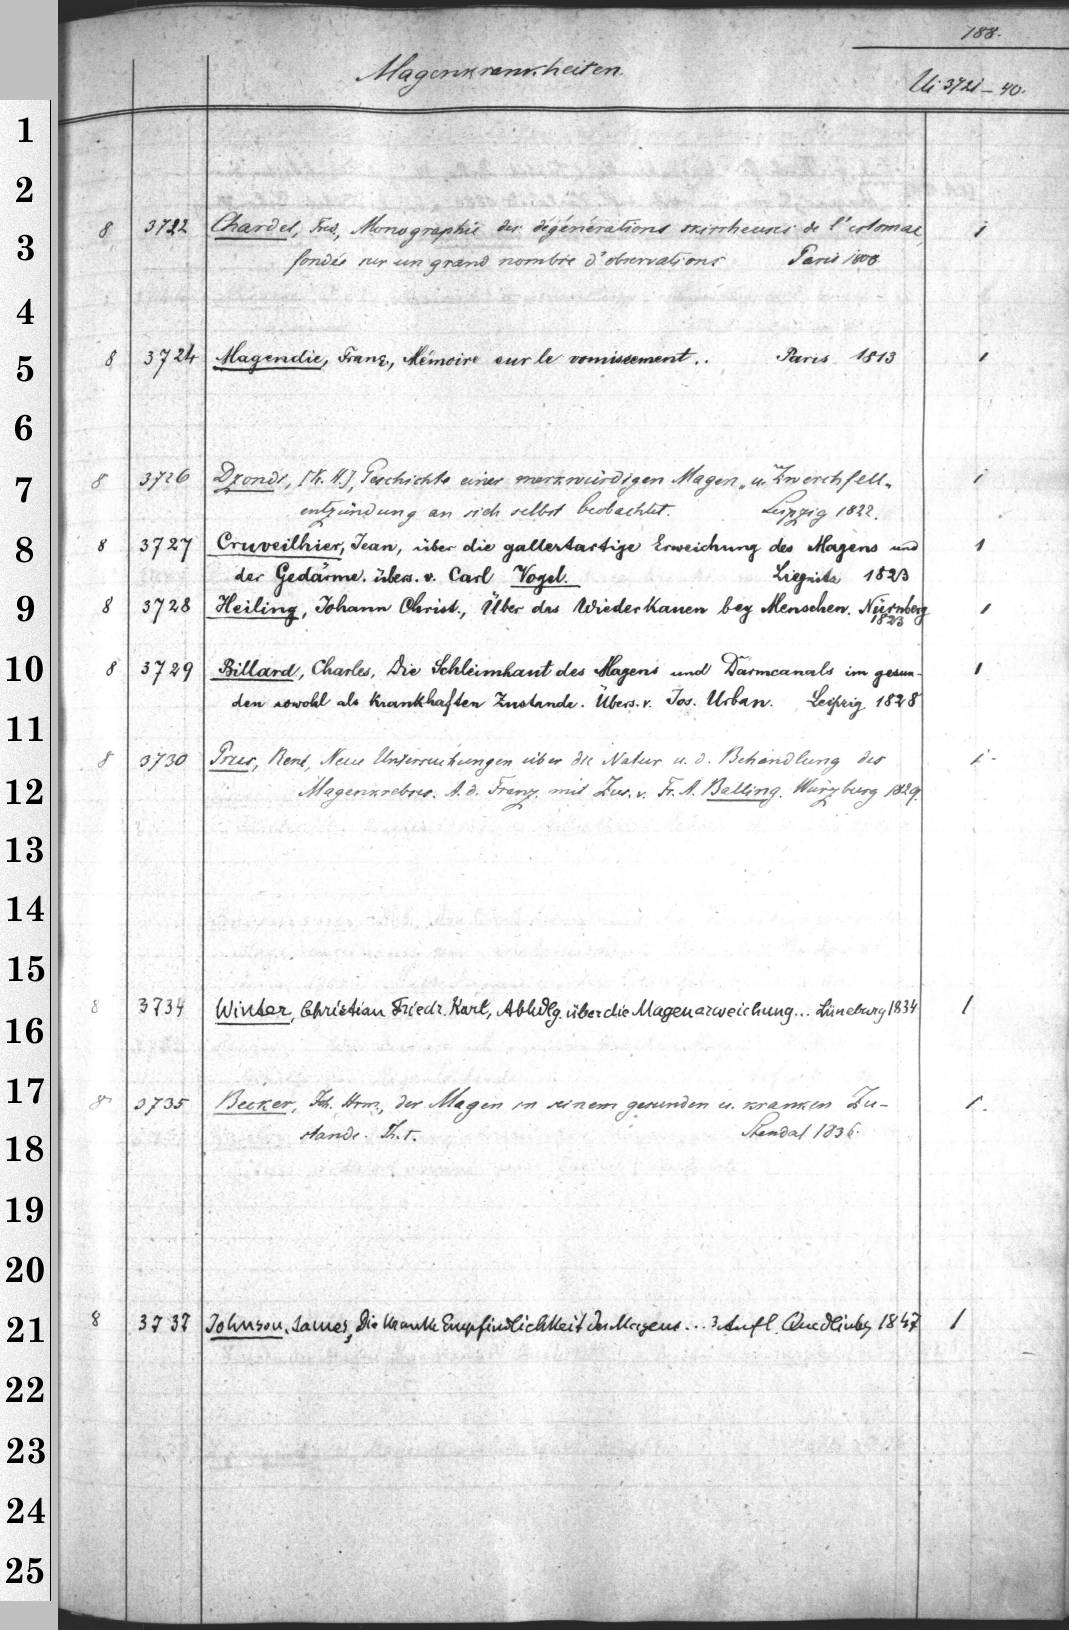 188.
Magenkrankheiten.
Ui 3721-40.
1
2
8 3722 Chardel, Frç., Monographie des dégénérations skirrheuses de l'estomac, 1
3
fondée sur un grand nombre d'observations Paris 1808
4
8 3724 Magendie, Franç., Mémoire sur le vomissement.. Paris 1813 1
5
6
8 3726 Dzondi, [K. H.], Geschichte einer merkwürdigen Magen- u. Zwerchfell- 1
7
entzündung an sich selbst beobachtet. Leipzig 1822.
8 3727 Cruveilhier, Jean, über die gallertartige Erweichung des Magens und 1
8
der Gedärme. übers. v. Carl Vogel. Liegnitz 1823
9
8 3728 Heiling, Johann Christ., Über das Wiederkauen bey Menschen. Nürnberg 1
1823
10
8 3729 Billard, Charles, Die Schleimhaut des Magens und Darmcanals im gesun- 1
den sowohl als krankhaften Zustande. Übers. v. Jos. Urban. Leipzig 1828
11
8 3730 Prus, René, Neue Untersuchungen über die Natur u. d. Behandlung des 1.
12
Magenkrebses. A. d. Franz. mit Zus. v. Fr. A. Balling. Würzburg 1829.
13
14
15
8 3734 Winter, Christian Friedr. Karl, Abhdlg. über die Magenerweichung... Lüneburg 1834 1
16
17
8 3735 Becker, Joh. Hrm., der Magen in seinem gesunden u. kranken Zu- 1.
18
stande. Th. 1. Stendal 1836.
19
20
8 3737 Johnson, James, Die kranke Empfindlichkeit des Magens... 3. Aufl. Quedlinbg 1847 1
21
22
23
24
25